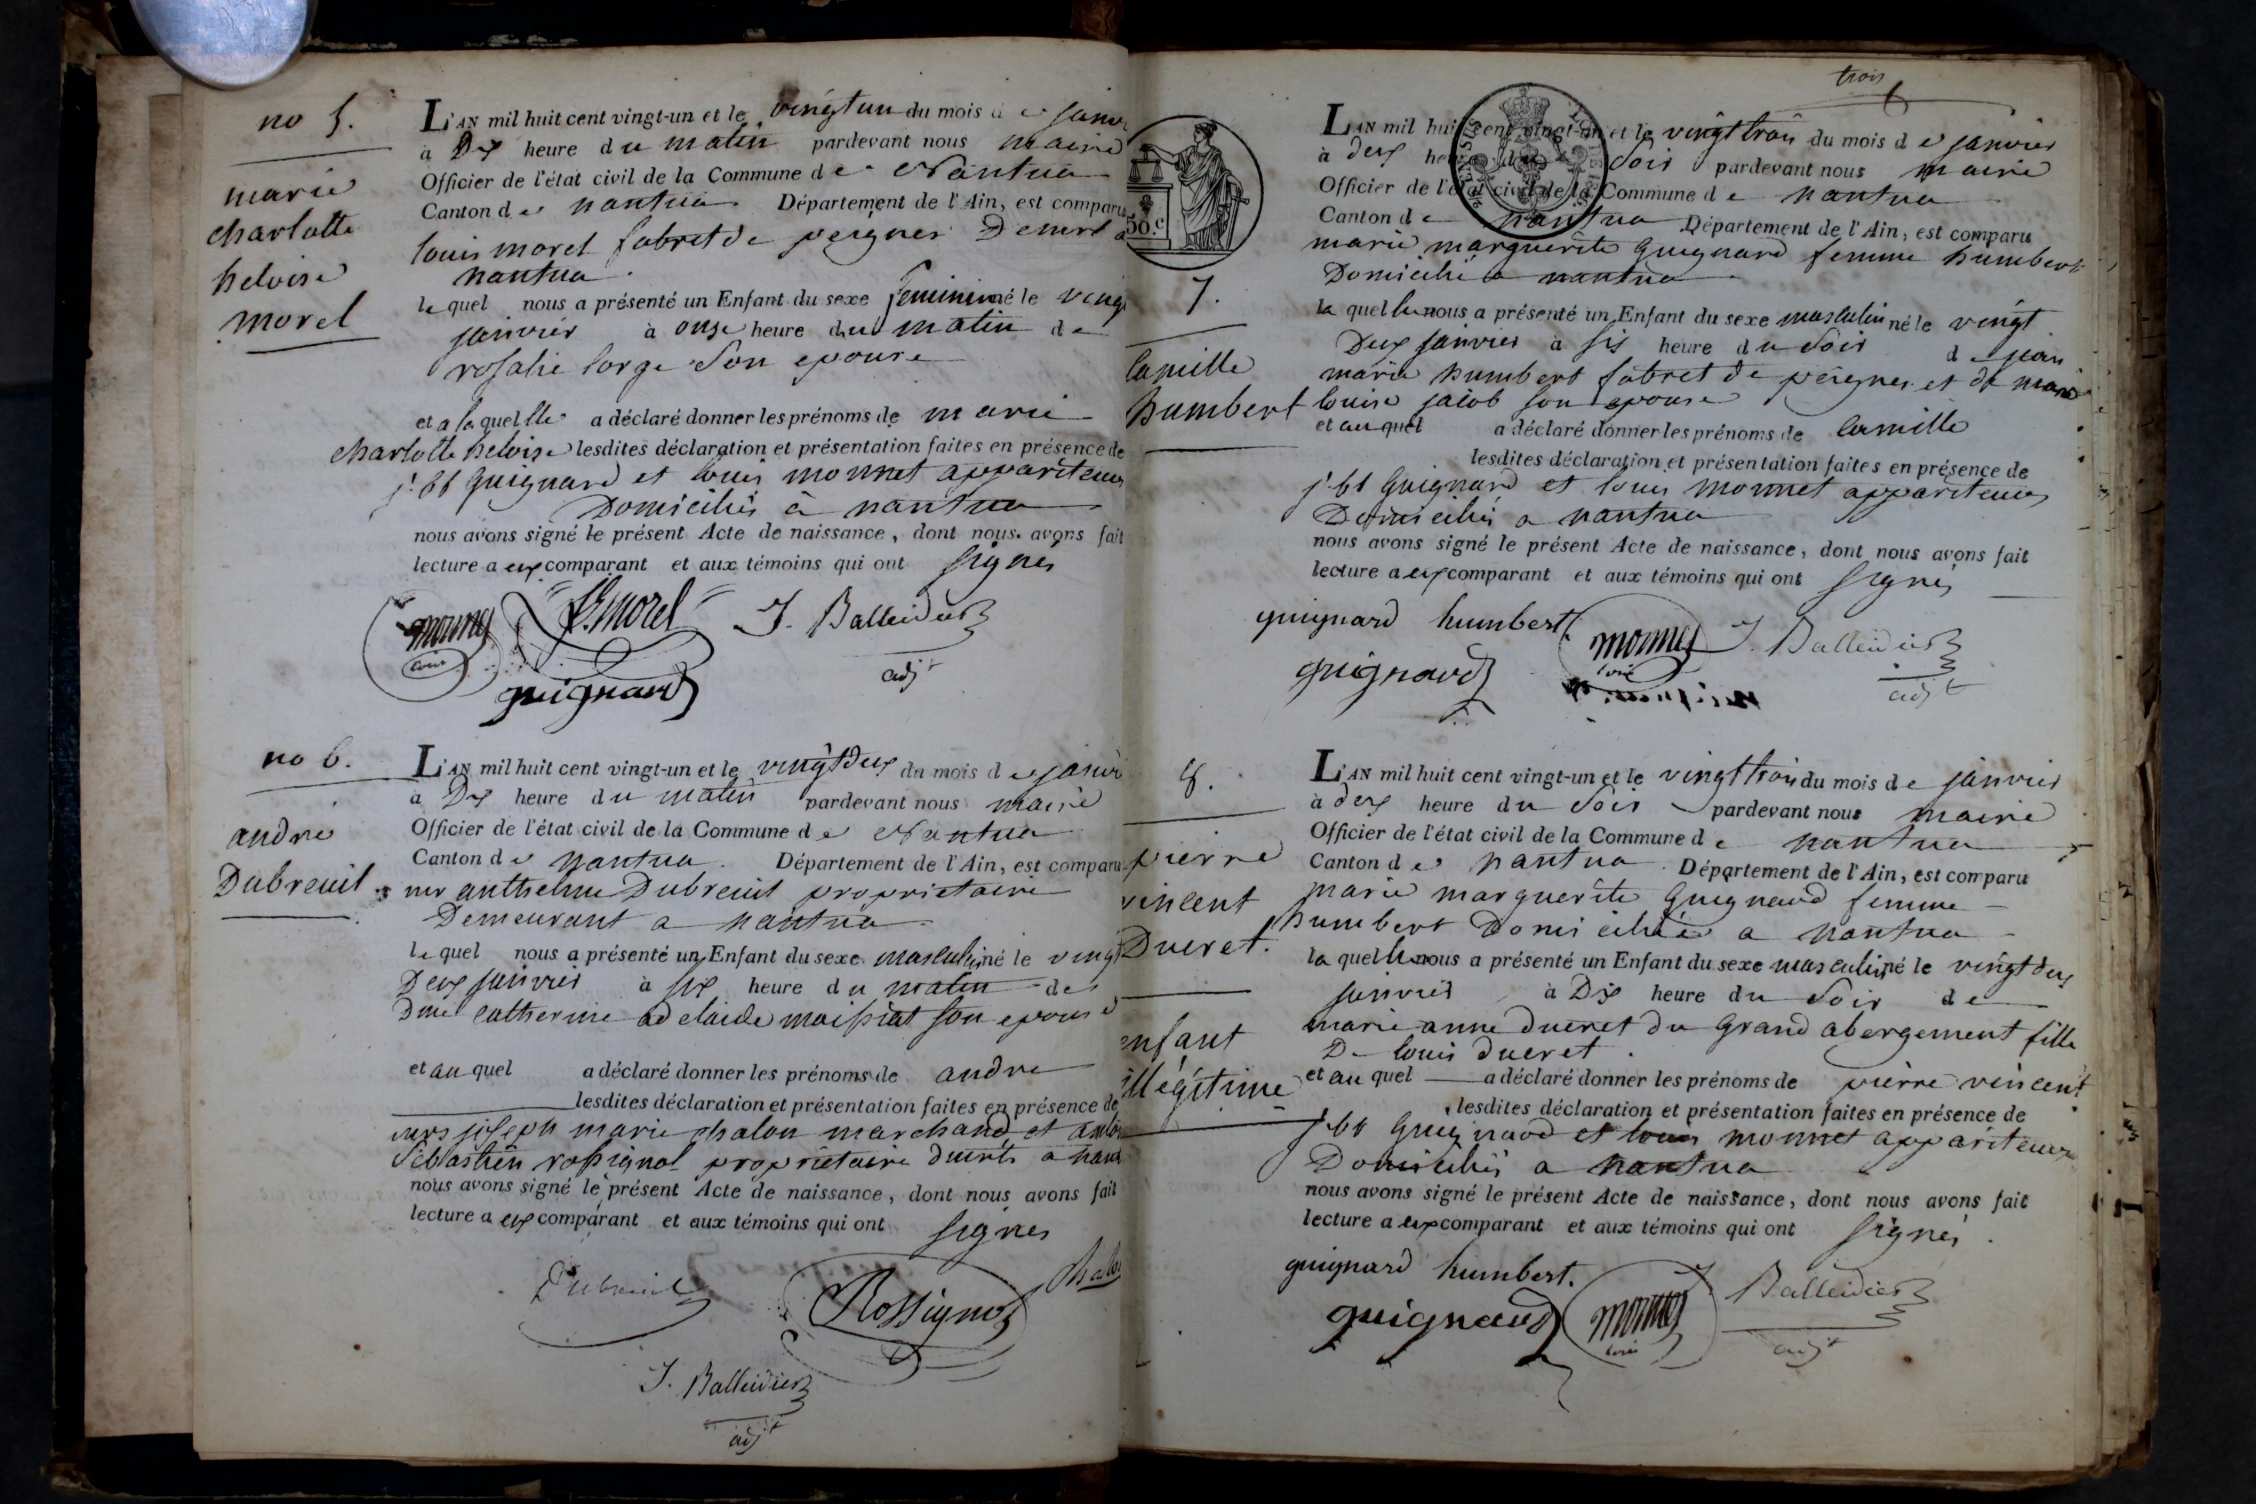 no 5.
marie
charlotte
heloise
morel
L'AN mil huit cent vingt-un et le vingt un du mois de janv
à Dix heure du matin pardevant nous maire
Officier de l'état civil de la Commune de Nantua
Canton de nantua Département de l'Ain, est comparu
louis morel fabt de peignes Demrt a
nantua
lequel nous a présenté un Enfant du sexe feminin né le vingt
janvier à onze heure du matin de
rosalie lorge son epouse
et a laquelle a déclaré donner les prénoms de marie
charlotte heloise lesdites déclaration et présentation faites en présence de
j. bt guignard et louis monnet appariteurs
Domiciliés à nantua
nous avons signé le présent Acte de naissance, dont nous avons fait
lecture a eux comparant et aux témoins qui ont signés
monnet
L. morel
J. Balleidier
adjt
guignard
no 6.
andré
Dubreuil
L'AN mil huit cent vingt-un et le vingt deux du mois de janvi
à Dix heure du matin pardevant nous maire
Officier de l'état civil de la Commune de Nantua
Canton de nantua Département de l'Ain, est comparu
mr anthelme Dubreuil proprietaire
Demeurant a nantua
lequel nous a présenté un Enfant du sexe masculin né le vingt
Deux janvier à six heure du matin de
Dme catherine adelaide maissiat son epouse
et au quel a déclaré donner les prénoms de andre
lesdites déclaration et présentation faites en présence de
mrs joseph marie chalon marchand et
Sebastien rossignol proprietaire Dmrts a nant
nous avons signé le présent Acte de naissance, dont nous avons fait
lecture a eux comparant et aux témoins qui ont signés
Dubreuil
Rossignol
Chalon
J. Balleidier
adjt
trois
50.c
7.
Camille
humbert
L'AN mil huit cent vingt-un et le vingt trois du mois de janvier
à deux heure du Soir pardevant nous maire
Officier de l'état civil de la Commune de nantua
Canton de nantua Département de l'Ain, est comparu
marie marguerite Guignard femme humbert
Domicilié a nantua
la quelle nous a présenté un Enfant du sexe masculin né le vingt
Deux janvier à six heure du Soir de jean
marie humbert fabt de peignes et de marie
louise jacob son epouse
et au quel a déclaré donner les prénoms de Camille
lesdites déclaration et présentation faites en présence de
j. bt Guignard et louis monnet appariteurs
Domiciliés a nantua
nous avons signé le présent Acte de naissance, dont nous avons fait
lecture a eux comparant et aux témoins qui ont signés
guignard humbert
monnet
J. Balleidier
adjt
guignard
8.
pierre
vincent
Ducret.
enfant
illégitime
L'AN mil huit cent vingt-un et le vingt trois du mois de janvier
à deux heure du Soir pardevant nous maire
Officier de l'état civil de la Commune de nantua
Canton de nantua Département de l'Ain, est comparu
marie marguerite Guignard femme
humbert Domiciliée a nantua
la quelle nous a présenté un Enfant du sexe masculin né le vingt deux
janvier à Dix heure du Soir de
marie anne ducret du Grand abergement fille
De louis ducret.
et au quel a déclaré donner les prénoms de pierre vincent
lesdites déclaration et présentation faites en présence de
j. bt Guignard et louis monnet appariteurs
Domiciliés a nantua
nous avons signé le présent Acte de naissance, dont nous avons fait
lecture a eux comparant et aux témoins qui ont signés.
guignard humbert.
guignard
monnet
J. Balleidier
adjt